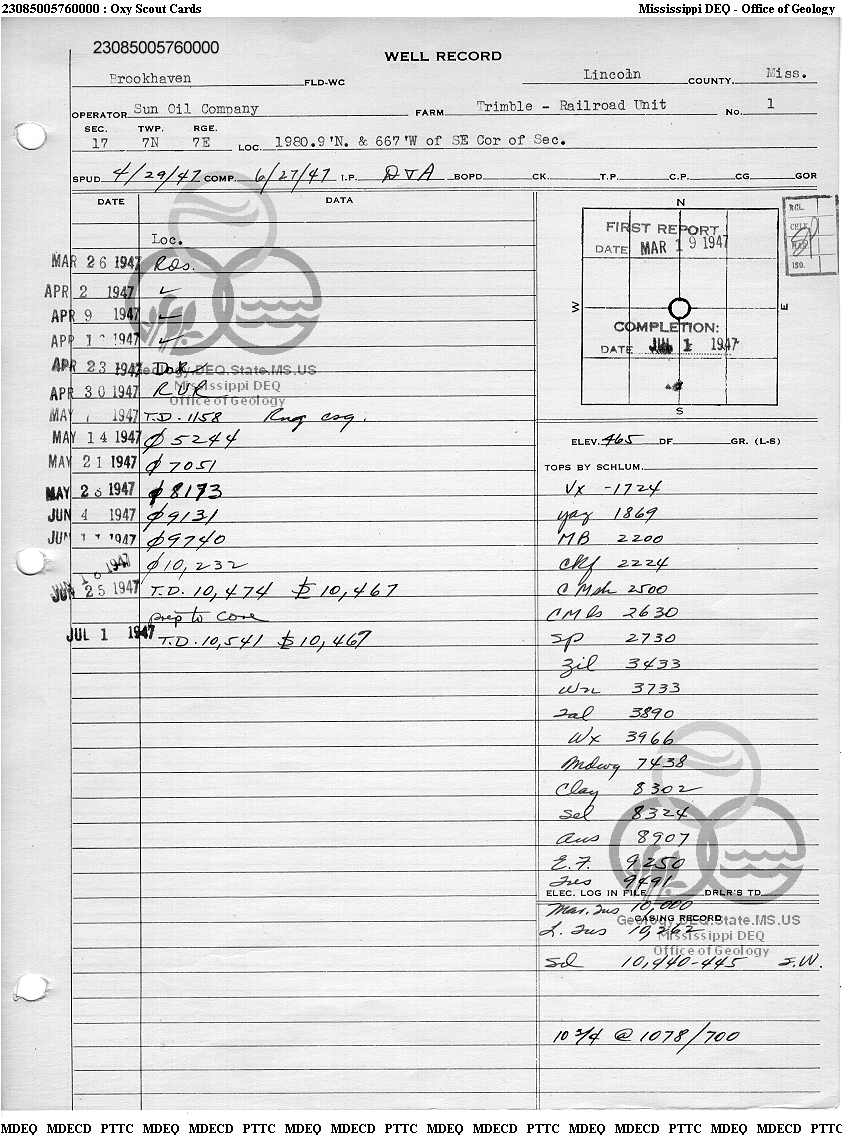 23085005760000 : Oxy Scout Cards Mississippi DEQ - Office of Geology
23085005760000
WELL RECORD
Brookhaven FLD-WC Lincoln COUNTY, Miss.
OPERATOR Sun Oil Company FARM Trimble - Railroad Unit No. 1
SEC. TWP. RGE.
17 7N 7E LOC. 1980.9'N. & 667'W of SE Cor of Sec.
SPUD 4/29/47 COMP. 6/27/47 I.P. D&A BOPD CK. T.P. C.P. CG GOR
DATE DATA
Loc.
MAR 26 1947 Rds.
APR 2 1947 ✓
APR 9 1947 ✓
APR 1 1947 ✓
APR 23 1947
APR 30 1947 RUR
MAY 7 1947 T.D. 1158 Rng csg.
MAY 14 1947 Ø 5244
MAY 21 1947 Ø 7051
MAY 28 1947 Ø 8173
JUN 4 1947 Ø 9131
JUN 1947 Ø 9740
1947 Ø 10,232
JUN 25 1947 T.D. 10,474 10,467
prep to core
JUL 1 1947 T.D. 10,541 10,467
N
FIRST REPORT
DATE MAR 19 1947
W E
COMPLETION:
DATE JUL 1 1947
S
RGL.
CHLK.
MAP.
ISO.
ELEV. 465 DF. GR. (L-S)
TOPS BY SCHLUM.
Vx -1724
yaz 1869
MB 2200
ckf 2224
C Msh 2500
C M ls 2630
Sp 2730
Zil 3433
Wn 3733
Tal 3890
Wx 3966
Mdwy 7438
Clay 8302
Sel 8324
Aus 8907
E.F. 9250
Tus 9491
ELEC. LOG IN FILE DRLR'S TD
Mar. Tus 10,000
CASING RECORD
L. Tus 10,262
Sd 10,440-445 S.W.
10 3/4 @ 1078/700
Geology.DEQ.State.MS.US
Mississippi DEQ
Office of Geology
Geology.DEQ.State.MS.US
Mississippi DEQ
Office of Geology
MDEQ MDECD PTTC MDEQ MDECD PTTC MDEQ MDECD PTTC MDEQ MDECD PTTC MDEQ MDECD PTTC MDEQ MDECD PTTC